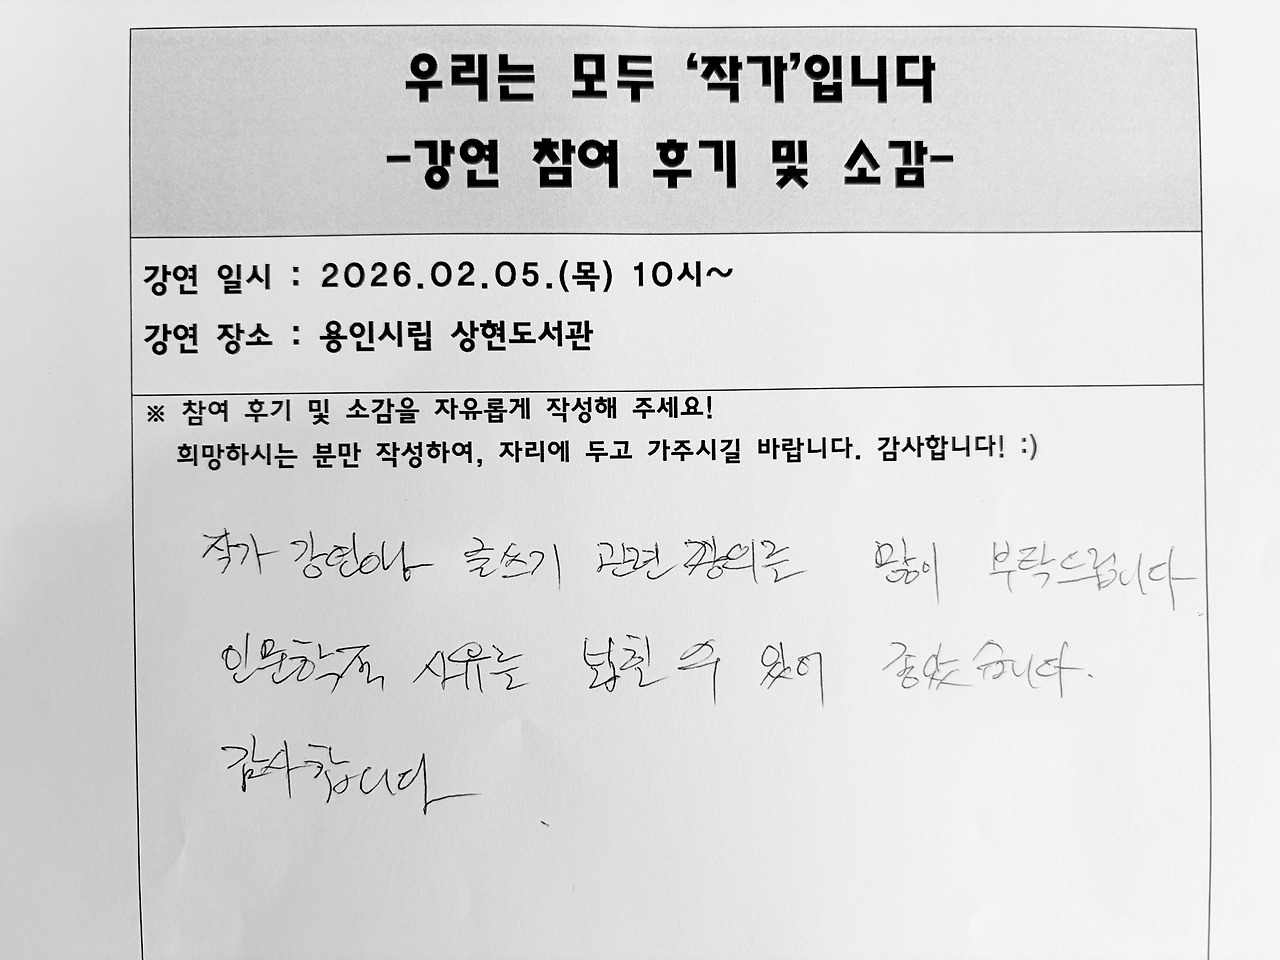 우리는 모두 ‘작가’입니다
-강연 참여 후기 및 소감-
강연 일시 : 2026.02.05.(목) 10시~
강연 장소 : 용인시립 상현도서관
※ 참여 후기 및 소감을 자유롭게 작성해 주세요!
희망하시는 분만 작성하여, 자리에 두고 가주시길 바랍니다. 감사합니다! :)
작가 강연이나 글쓰기 관련 강의를 많이 부탁드립니다
인문학적 사유를 넓힐 수 있어 좋았습니다.
감사합니다